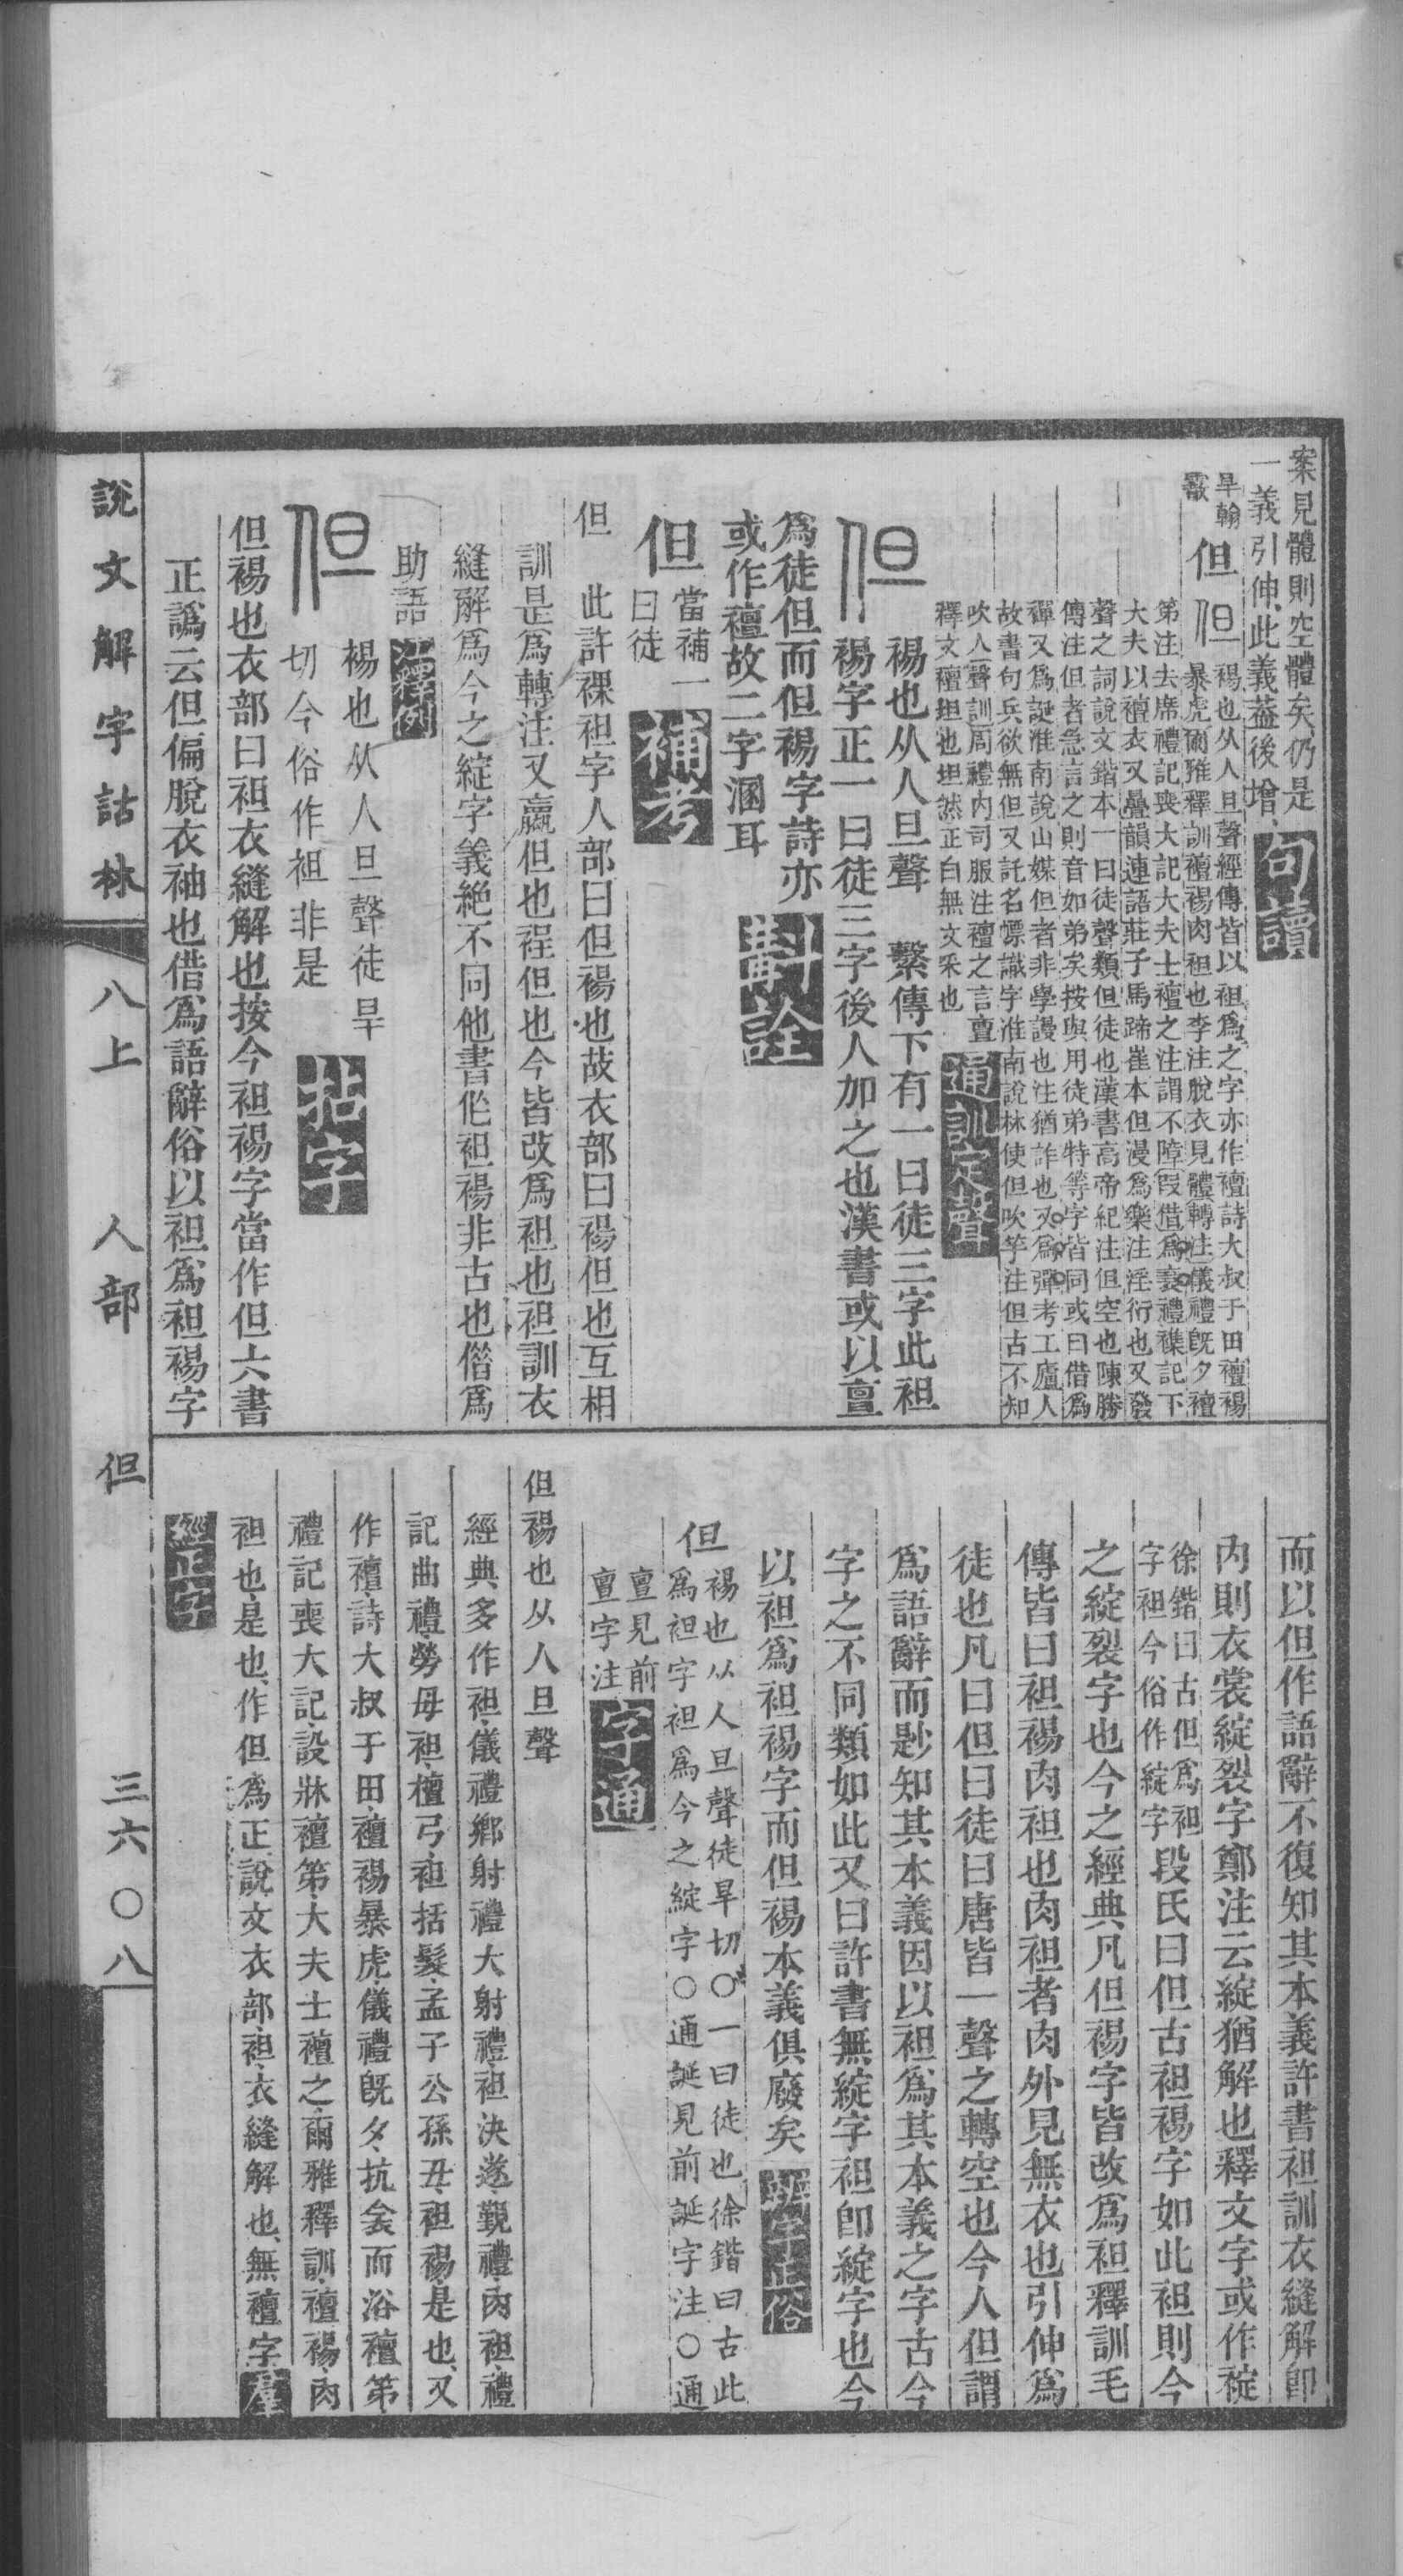 案見體則空體矣仍是
一義引伸此義葢後增 句讀
旱翰
但
裼也从人旦聲經傳皆以袒爲之字亦作襢詩大叔于田襢裼
暴虎爾雅釋訓襢裼肉袒也李注脫衣見體轉注儀禮旣夕襢
第注去席禮記喪大記大夫士襢之注謂不障叚借爲襃禮襍記下
大夫以襢衣又疊韻連語莊子馬蹄崔本但漫爲樂注淫衍也又發
聲之詞說文鍇本一曰徒聲類但徒也漢書高帝紀注但空也陳勝
傳注但者急言之則音如弟矣按與用徒弟特等字皆同或曰借爲
禪又爲誕淮南說山媒但者非學謾也注猶詐也又爲彈考工廬人
故書句兵欲無但又託名幖識字淮南說林使但吹竽注但古不知
吹人聲訓周禮內司服注襢之言亶
釋文襢坦也坦然正白無文采也 通訓定聲
但
裼也从人旦聲 繫傳下有一曰徒三字此袒
裼字正一曰徒三字後人加之也漢書或以亶
爲徒但而但裼字詩亦
或作襢故二字溷耳 斠詮
但
當補一
曰徒 補考
但 此許裸袒字人部曰但裼也故衣部曰裼但也互相
訓是爲轉注又臝但也裎但也今皆改爲袒也袒訓衣
縫解爲今之綻字義絶不同他書作袒裼非古也偕爲
助語 釋例
但
裼也从人旦聲徒旱
切今俗作袒非是 拈字
但裼也衣部曰袒衣縫解也按今袒裼字當作但六書
正譌云但偏脫衣袖也借爲語辭俗以袒爲袒裼字
而以但作語辭不復知其本義許書袒訓衣縫解卽
內則衣裳綻裂字鄭注云綻猶解也釋文字或作䘺
徐鍇曰古但爲袒
字袒今俗作綻字
段氏曰但古袒裼字如此袒則今
之綻裂字也今之經典凡但裼字皆改爲袒釋訓毛
傳皆曰袒裼肉袒也肉袒者肉外見無衣也引伸爲
徒也凡曰但曰徒曰唐皆一聲之轉空也今人但謂
爲語辭而尟知其本義因以袒爲其本義之字古今
字之不同類如此又曰許書無綻字袒卽綻字也今
以袒爲袒裼字而但裼本義俱廢矣
但
裼也从人旦聲徒旱切○一曰徒也徐鍇曰古此
爲袒字袒爲今之綻字○通誕見前誕字注○通
亶見前
亶字注 字通
但裼也从人旦聲
經典多作袒儀禮鄉射禮大射禮袒決遂覲禮肉袒禮
記曲禮勞毋袒檀弓袒括髮孟子公孫丑袒裼是也又
作襢詩大叔于田襢裼暴虎儀禮旣夕抗衾而浴襢第
禮記喪大記設牀襢第大夫士襢之爾雅釋訓襢裼肉
袒也是也作但爲正說文衣部袒衣縫解也無襢字
經正字
說文解字詁林
八上
人部
但
三六〇八